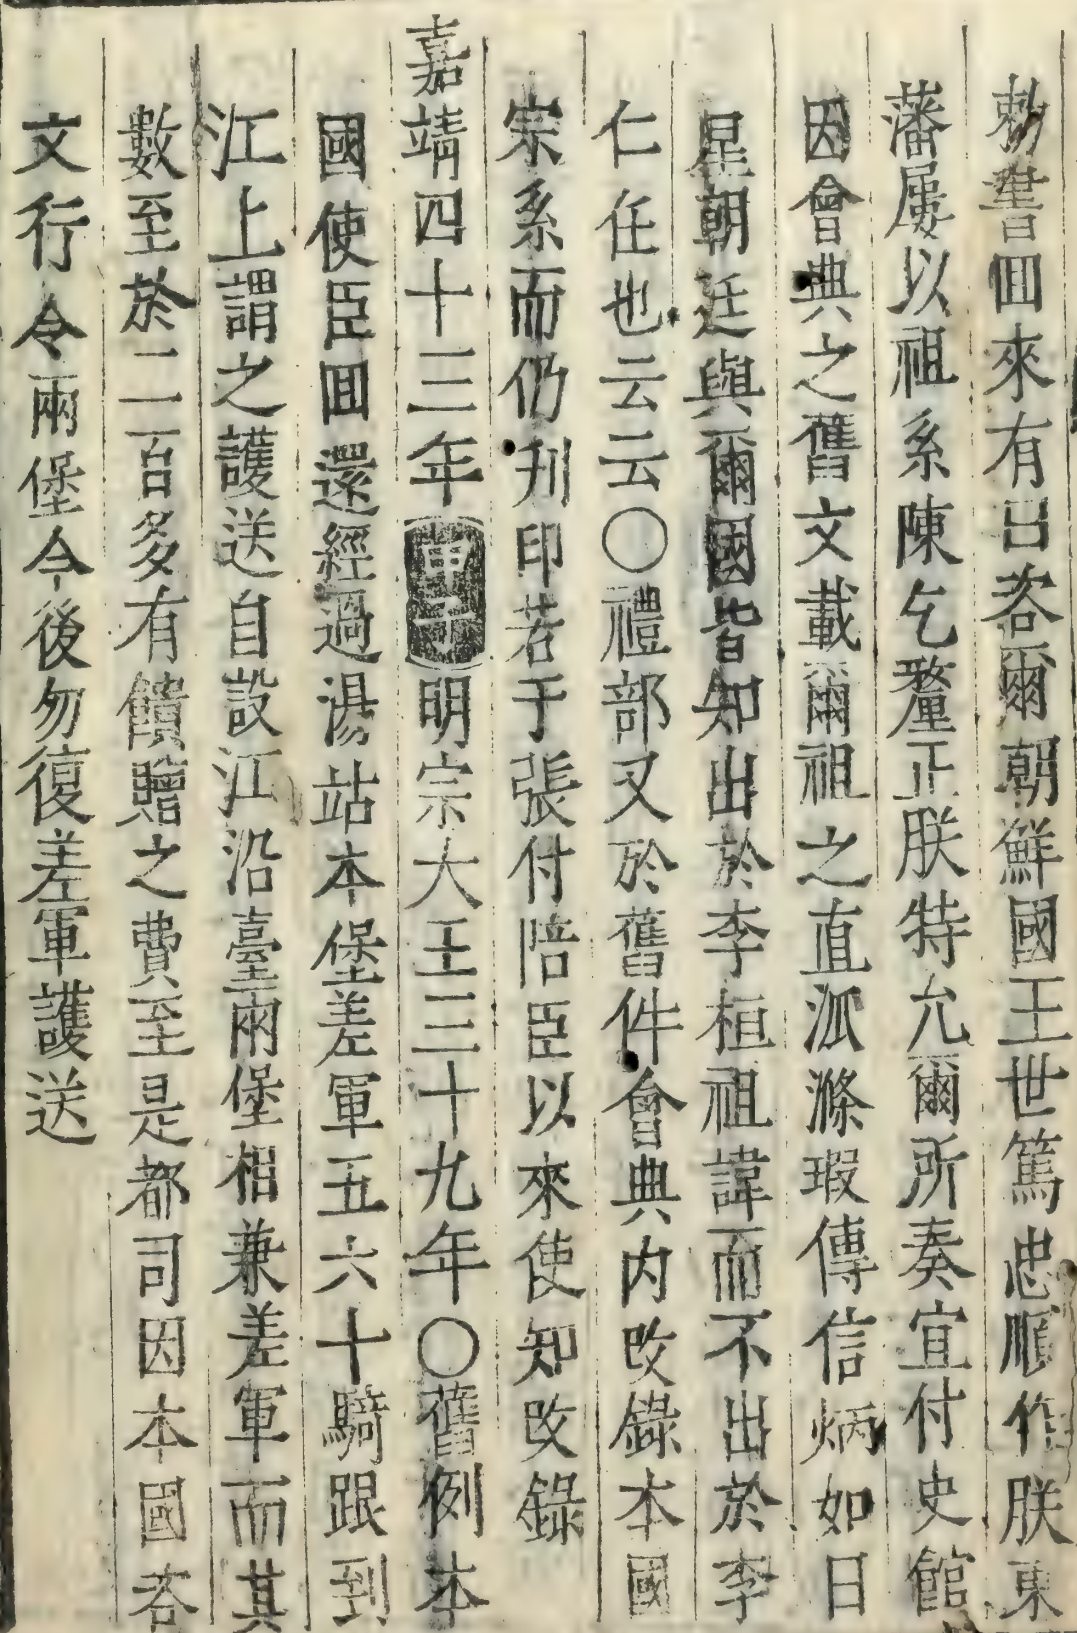 勑書回來有曰咨爾朝鮮國王世篤忠順作朕東
藩屢以祖系陳乞釐正朕特允爾所奏宜付史館
因會典之舊文載爾祖之直派滌瑕傳信炳如日
星朝廷與爾國皆知出於李桓祖諱而不出於李
仁任也云云○禮部又於舊件會典内改錄本國
宗系而仍刋印若于張付陪臣以來使知改錄
嘉靖四十三年甲子明宗大王三十九年○舊例本
國使臣回還經過湯站本堡差軍五六十騎跟到
江上謂之護送自設江沿臺兩堡相兼差軍而其
數至於二百多有饋贐之費至是都司因本國咨
文行令兩堡今後勿復差軍護送